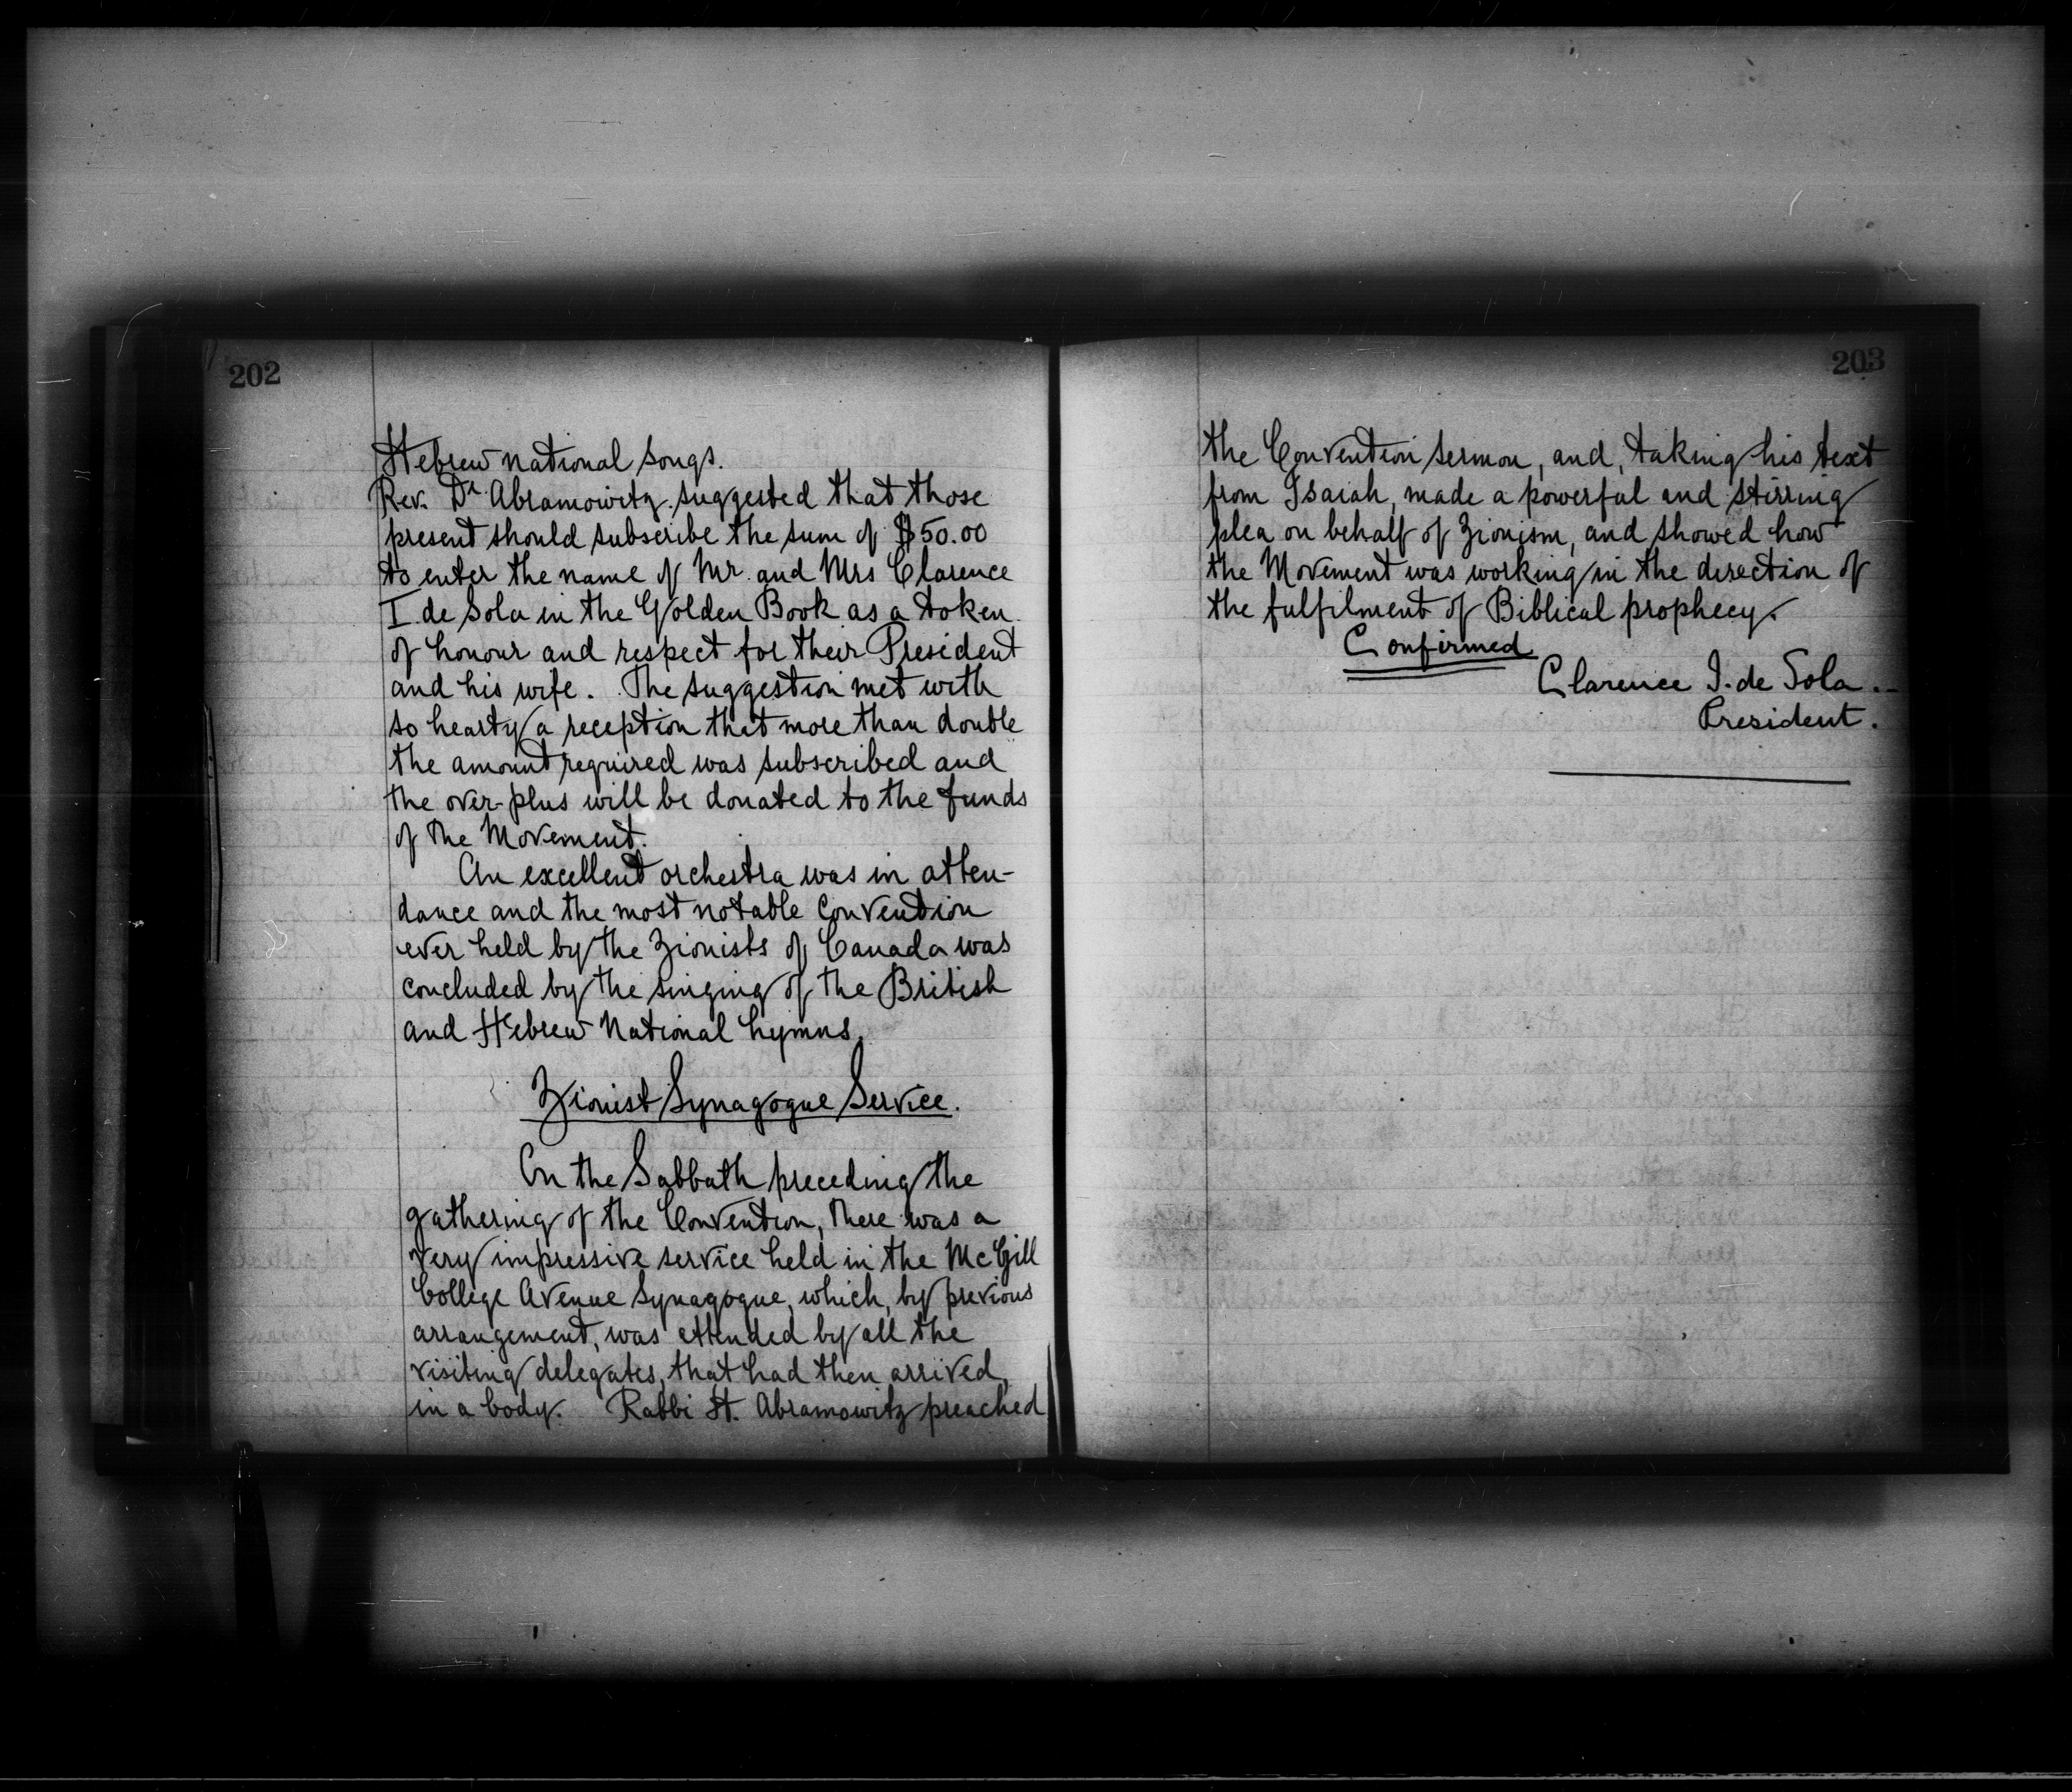 202
Hebrew National Songs.
Rev. Dr. Abramowitz suggested that those
present should subscribe the sum of $50.00
to enter the name of Mr. and Mrs Clarence
I. de Sola in the Golden Book as a token
of honour and respect for their President
and his wife. The suggestion met with
so hearty a reception that more than double
the amount required was subscribed and
the over-plus will be donated to the funds
of the Movement.
An excellent orchestra was in atten-
dance and the most notable Convention
ever held by the Zionists of Canada was
concluded by the singing of the British
and Hebrew National hymns.
Zionist Synagogue Service.
On the Sabbath preceding the
gathering of the Convention, there was a
very impressive service held in the McGill
College Avenue Synagogue, which, by previous
arrangement, was attended by all the
visiting delegates, that had then arrived,
in a body. Rabbi H. Abramowitz preached
203
the Convention sermon, and, taking his text
from Isaiah, made a powerful and stirring
plea on behalf of Zionism, and showed how
the Movement was working in the direction of
the fulfilment of Biblical prophecy.
Confirmed
Clarence I. de Sola.
President.